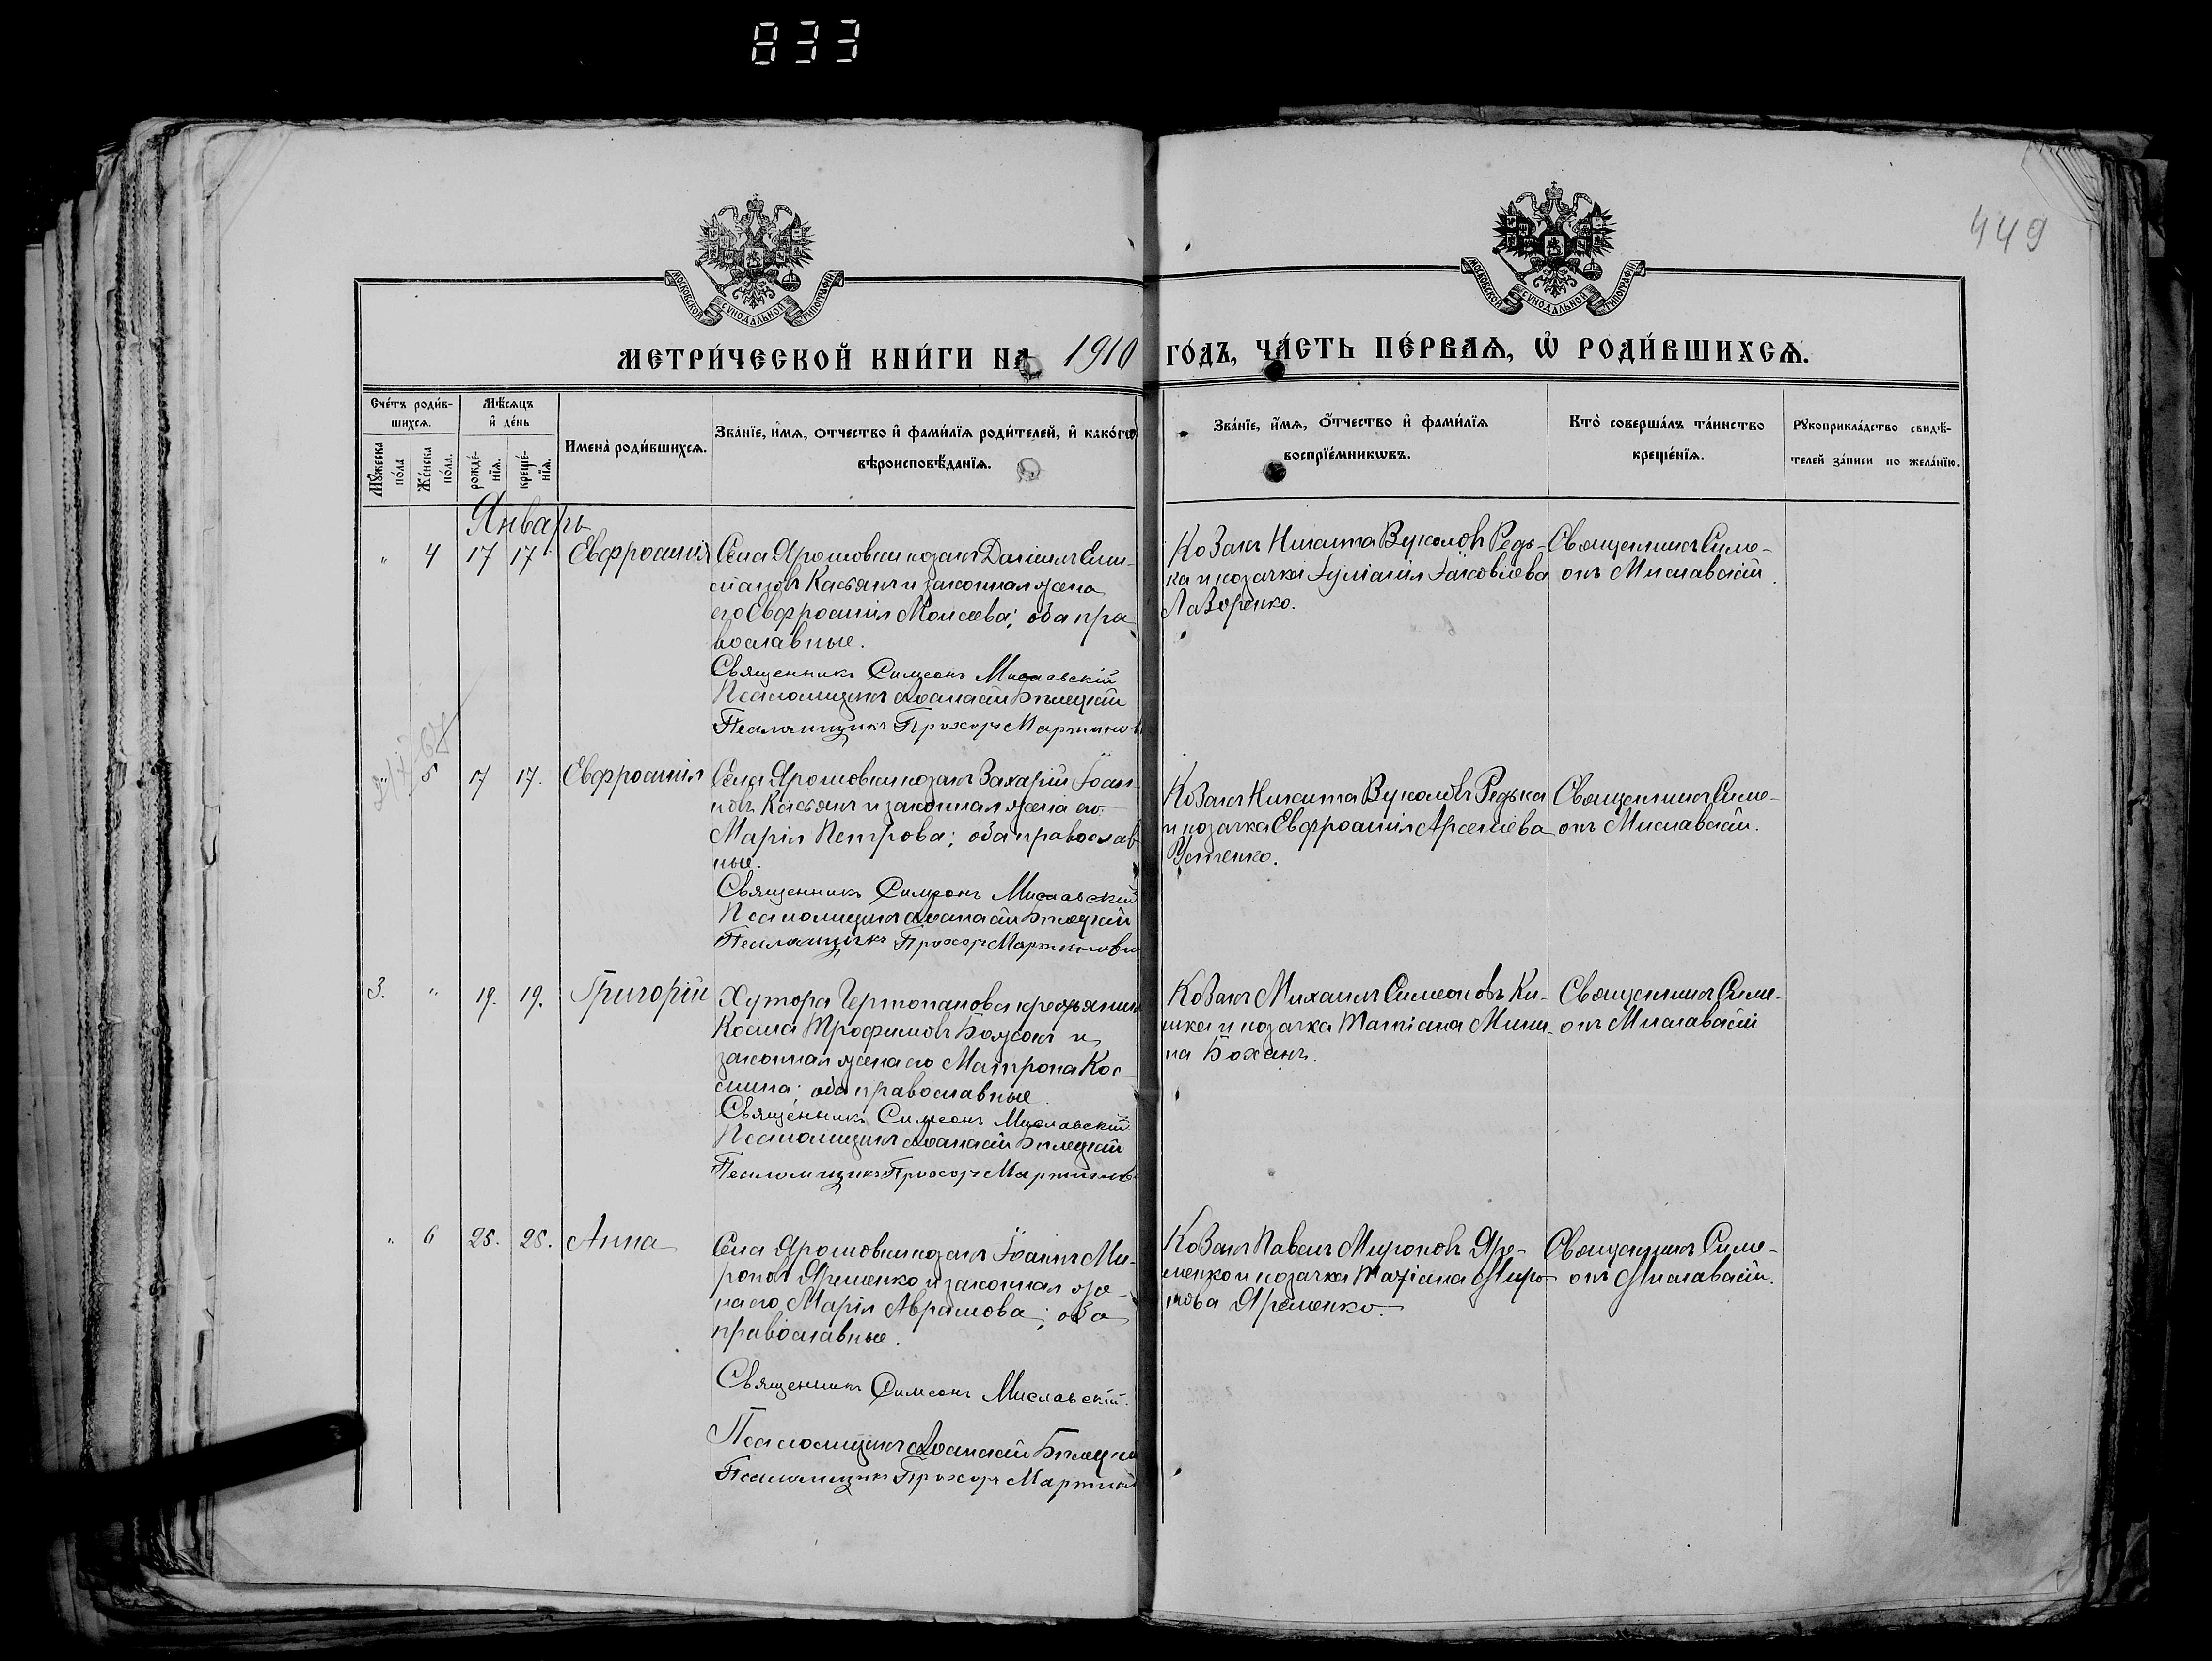 833
449
МОСКОВСКОЙ СѴНОДАЛЬНОЙ ТИПОГРАФІИ
МОСКОВСКОЙ СѴНОДАЛЬНОЙ ТИПОГРАФІИ
МЕТРИ́ЧЕСКОЙ КНИ́ГИ НА 1910 ГО́ДЪ, ЧА́СТЬ ПЕ́РВАѦ, Ѡ РОДИ́ВШИХСѦ.
Сче́тъ роди́в-
шихсѧ.
Мꙋжеска по́ла
Же́нска по́ла.
Мѣ́сѧцъ
и҆ де́нь
рожде́-
нїѧ.
креще́-
нїѧ.
Имена̀ роди́вшихсѧ.
Зва́нїе, и҆́мѧ, ѻ҆́тчество и҆ фами́лїѧ роди́телей, и҆ како́гѡ
вѣроисповѣ́данїѧ.
Зва́нїе, и҆́мѧ, ѻ҆́тчество и҆ фами́лїѧ
воспрїе́мникѡвъ.
Кто̀ соверша́лъ та́инство
креще́нїѧ.
Рꙋкоприкла́дство свидѣ́-
телей за́писи по жела́нїю.
Январь
" 4 17 17. Евфросинія
Села Ярошовки козакъ Даніилъ
Касьянъ и законная жена
его Евфросинія Моисеева; оба пра-
вославные.
Священникъ Симеонъ Миславскій
Псаломщикъ Аѳанасій Бѣлецкій
Псаломщикъ Прохоръ Мартинов
Козакъ Никита Вуколовъ Редь-
ка и козачка Іуліанія Іаковлева
Лазоренко.
Священникъ Симе-
онъ Миславскій.
5 17 17. Евфросинія
Села Ярошовки козакъ Захарій Іоан-
новъ Касьянъ и законная жена его
Марія Петрова; оба православ-
ные.
Священникъ Симеонъ Миславскій
Псаломщикъ Аѳанасій Бѣлецкій
Псаломщикъ Прохоръ Мартинов
Козакъ Никита Вуколовъ Редька
и козачка Евфросинія Арсеніева
Устенко.
Священникъ Симе-
онъ Миславскій.
3. " 19. 19. Григорій
Хутора Чертопановка крестьянинъ
Косма Трофимовъ и
законная жена его Матрона Кос-
мина; оба православные.
Священникъ Симеонъ Миславскій
Псаломщикъ Аѳанасій Бѣлецкій
Псаломщикъ Прохоръ Мартинов
Козакъ Михаилъ Симеоновъ Ки-
шка и козачка Татіана Мини-
на Боханъ.
Священникъ Симе-
онъ Миславскій
" 6 25. 25. Анна
Села Ярошовки козакъ Іоаннъ Ми-
роновъ Яременко и законная же-
на его Марія Аврамова; оба
православные.
Священникъ Симеонъ Миславскій.
Псаломщикъ Аѳанасій Бѣлецкій
Псаломщикъ Прохоръ Мартинов
Козакъ Павелъ Мироновъ Яре-
менко и козачка Татіана Миро-
нова Яременко.
Священникъ Симе-
онъ Миславскій.